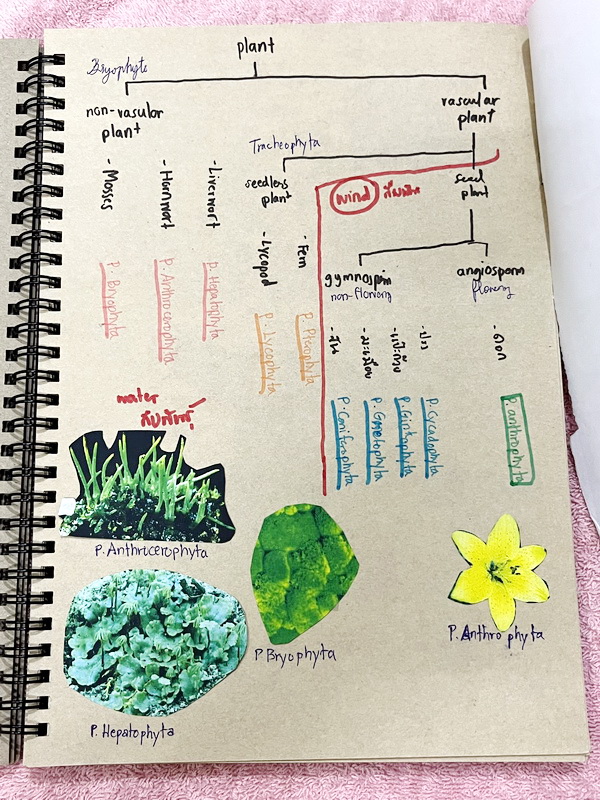 plant
Bryophyte
non-vascular
plant
vascular
plant
- Mosses
- Hornwort
- Livermort
P. Bryophyta
P. Anthrocerophyta
P. Hepatophyta
Tracheophyta
seedless
plant
- Lycopod
- Fern
P. Lycophyta
P. Pterophyta
wind
seed
plant
gymnosperm
non-flowering
angiosperm
flowering
- สน
- มะเมื่อย
- แป๊ะก๊วย
- ปรง
- ดอก
P. Coniferophyta
P. Gnetophyta
P. Ginkophyta
P. Cycadophyta
P. anthrophyta
water
สืบพันธุ์
P. Anthrocerophyta
P. Bryophyta
P. Anthrophyta
P. Hepatophyta